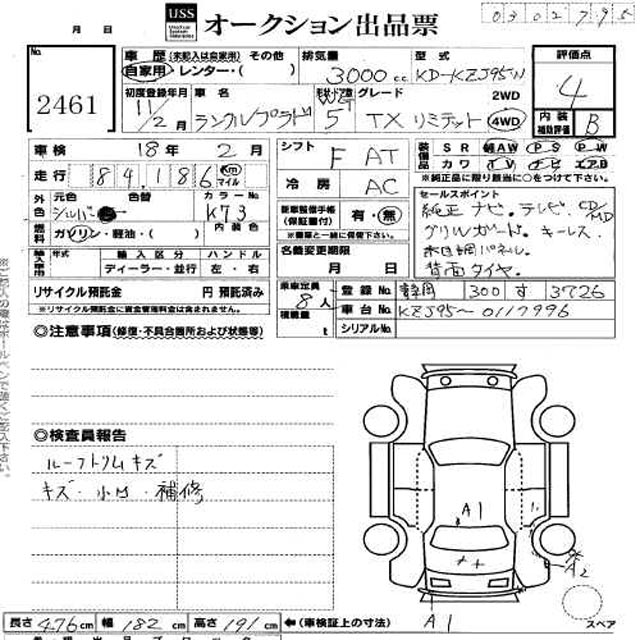 月 日
USS
オークション出品票
0302795
No.
2461
車歴(未記入は自家用) その他
自家用・レンター・( )
排気量
3000 c.c.
型式
KD-KZJ95W
評価点
4
内装
補助評価
B
初度登録年月
11/2月
車名
ランクルプラド
形状・ドア数
5
グレード
TX リミテッド
2WD
4WD
車検
18年 2月
走行
84,186
km
マイル
シフト
F AT
冷房
AC
装備品
SR AW PS PW
カワ TV
※純正品に限り該当に○をつけて下さい。
外色
元色
シルバー
色替
カラーNo.
K73
燃料
ガソリン・軽油・( )
内装色
新車整備手帳
(保証書付)
有・無
※書類と一緒に保管下さい。
セールスポイント
純正ナビ。テレビ。CD/MD
グリルガード。キーレス。
木目調パネル。
背面タイヤ。
輸入車用
年式
輸入区分
ディーラー・並行
ハンドル
左・右
名義変更期限
月 日
リサイクル預託金
円 預託済み
※リサイクル預託金に資金管理料金は含まれません。
乗車定員
8人
積載量
t
登録No.
300 す 3726
車台No.
KZJ95-0117996
シリアルNo.
◎注意事項(修復・不具合箇所および状態等)
◎検査員報告
ルーフトリムキズ
キズ・小凹・補修
A1
A2
A1
スペア
長さ 476cm 幅 182cm 高さ 191cm ←(車検証上の寸法)